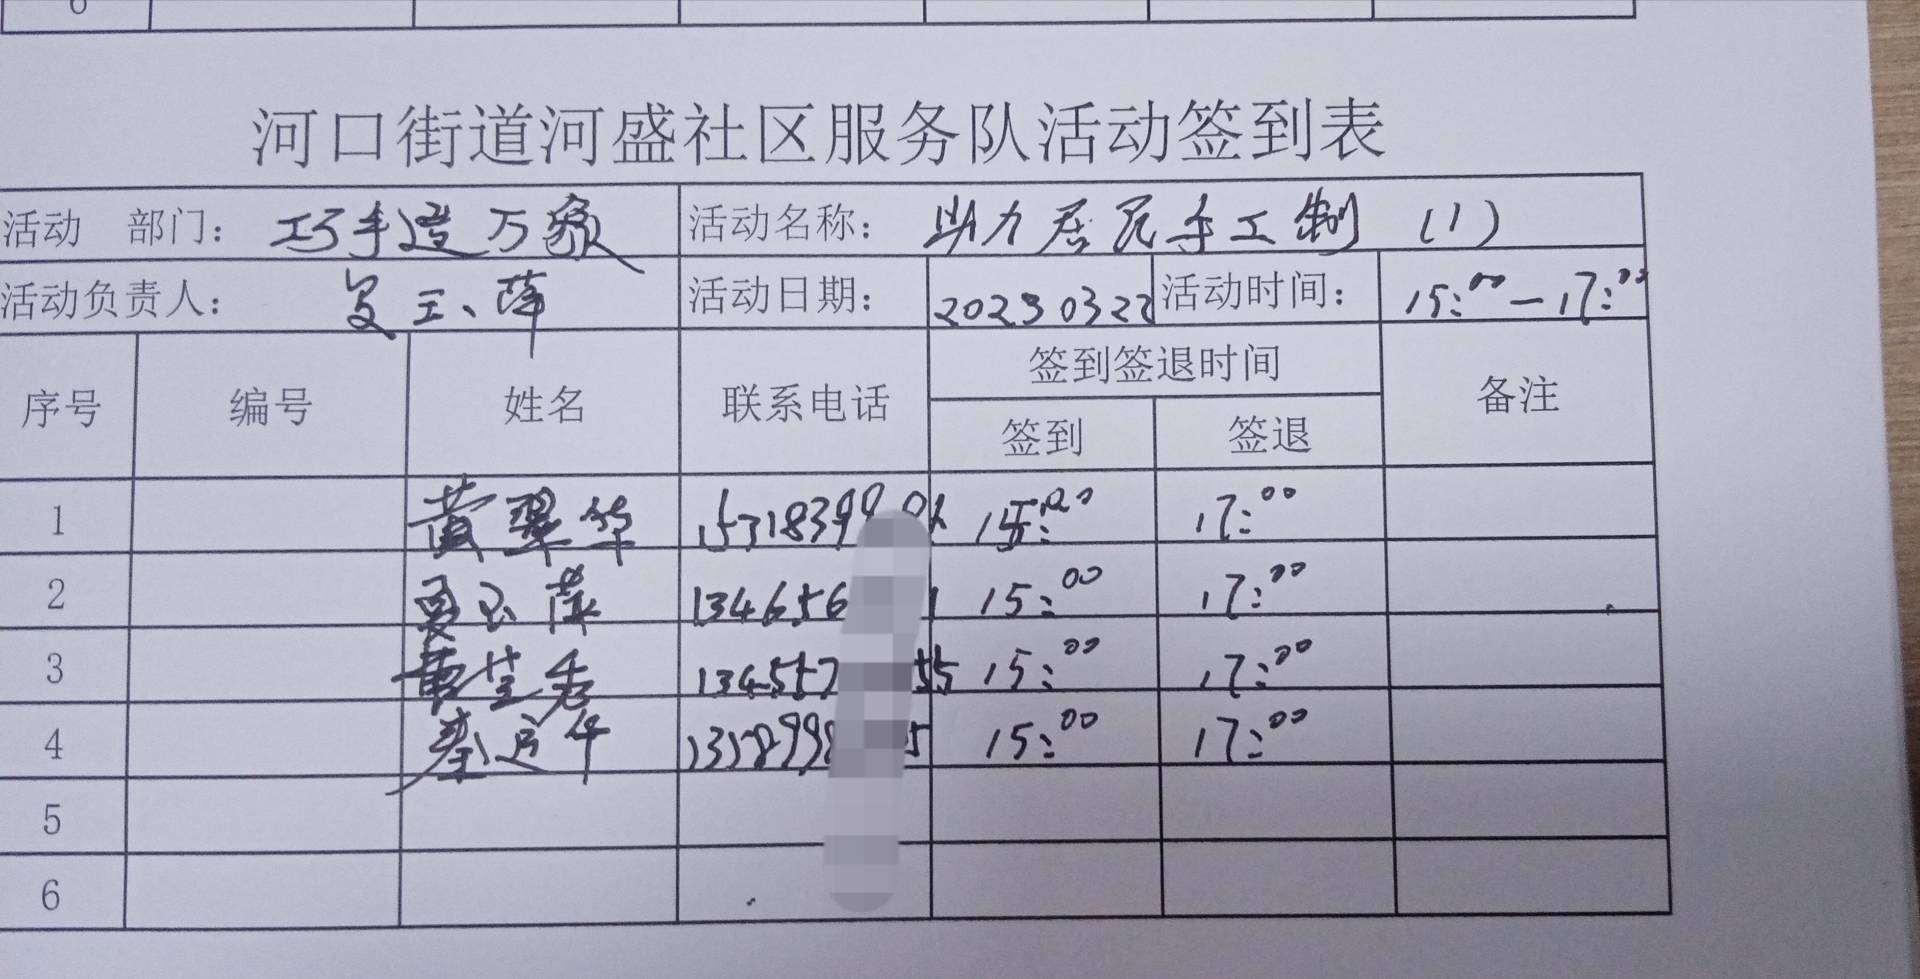 河口街道河盛社区服务队活动签到表
活动 部门: 巧手造万象 活动名称: 助力居民手工制 (1)
活动负责人: 夏玉萍 活动日期: 20230322 活动时间: 15:00-17:00
序号 编号 姓名 联系电话 签到签退时间 备注
签到 签退
1 黄翠华 15:00 17:00
2 夏玉萍 134656 1 15:00 17:00
3 134557 55 15:00 17:00
4 15:00 17:00
5
6